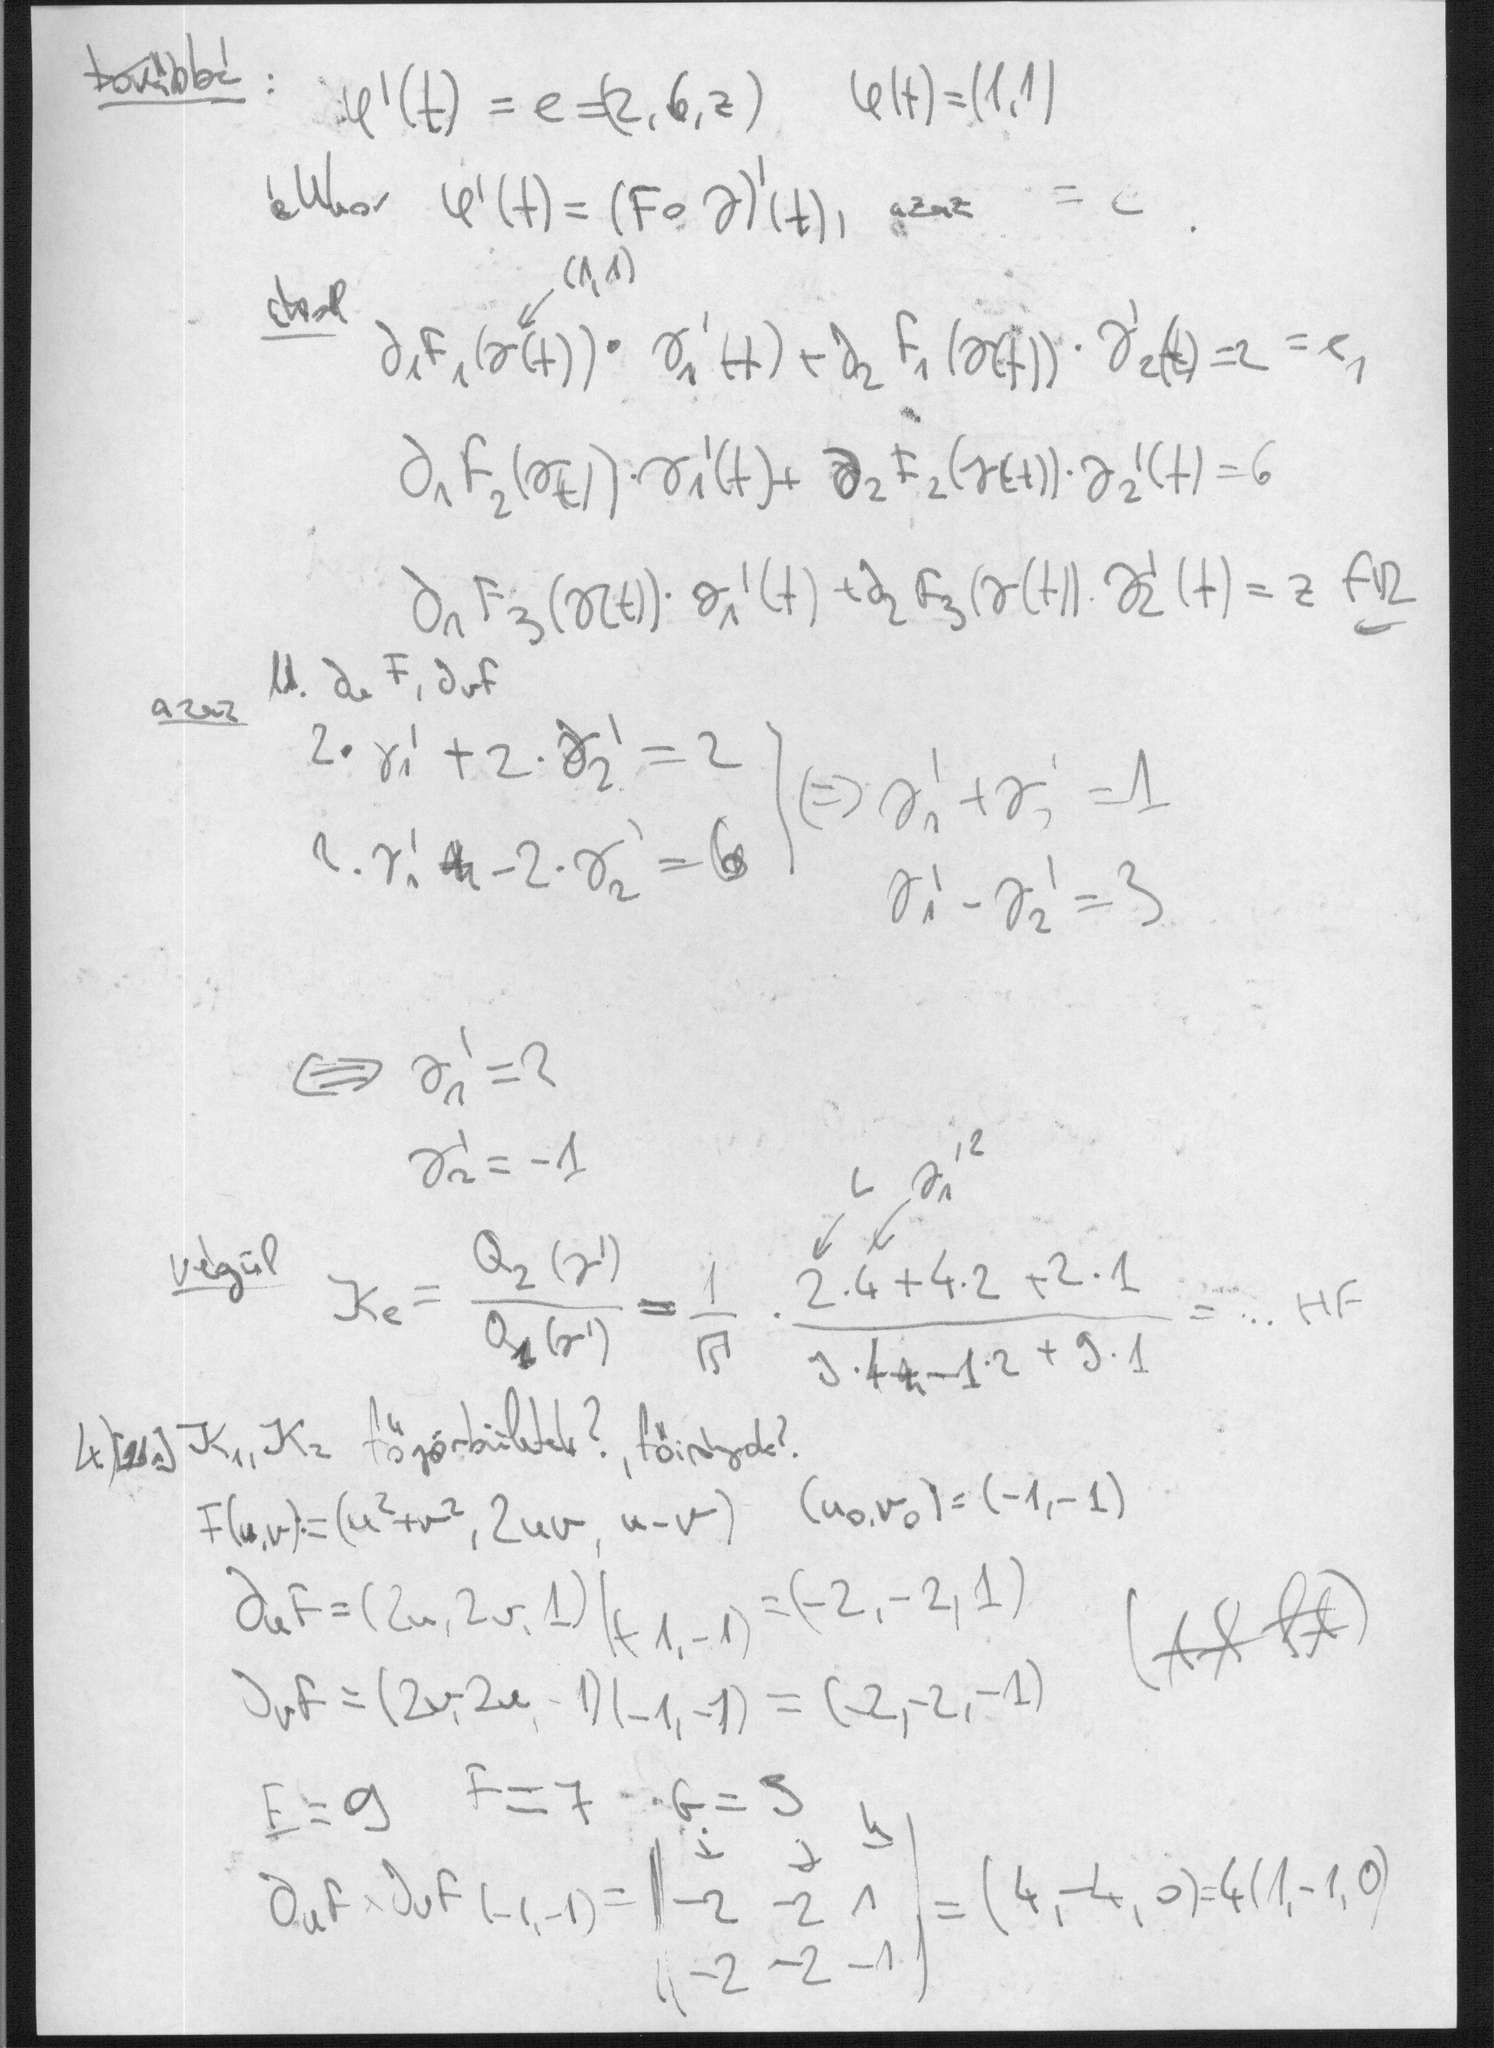 továbbá :
φ'(t) = e = (2, 6, z) φ(t) = (1,1)
ekkor φ'(t) = (F∘γ)'(t), azaz = e .
(1,1)
∂₁F₁(γ(t)) · γ₁'(t) + ∂₂F₁(γ(t)) · γ₂'(t) = 2 = e₁
∂₁F₂(γ(t)) · γ₁'(t) + ∂₂F₂(γ(t)) · γ₂'(t) = 6
∂₁F₃(γ(t)) · γ₁'(t) + ∂₂F₃(γ(t)) · γ₂'(t) = z ∈ ℝ
∂ᵤF, ∂ᵥF
azaz
2 · γ₁' + 2 · γ₂' = 2
2 · γ₁' - 2 · γ₂' = 6
⇔ γ₁' + γ₂' = 1
γ₁' - γ₂' = 3
⇔ γ₁' = 2
γ₂' = -1
L γ₁'²
végül κₑ = Q₂(γ') / Q₁(γ') = 1/√ · (2·4 + 4·2 + 2·1) / (9·4 - 1·2 + 9·1) = ... HF
4) κ₁, κ₂ főgörbületek?, főirányok?
F(u,v) := (u²+v², 2uv, u-v) (u₀,v₀) = (-1,-1)
∂ᵤF = (2u, 2v, 1)|(-1,-1) = (-2, -2, 1)
∂ᵥF = (2v, 2u, -1)(-1,-1) = (-2, -2, -1)
E = 9 F = 7 G = 9
i j k
∂ᵤF × ∂ᵥF (-1,-1) = | -2 -2 1 | = (4, -4, 0) = 4(1,-1,0)
-2 -2 -1